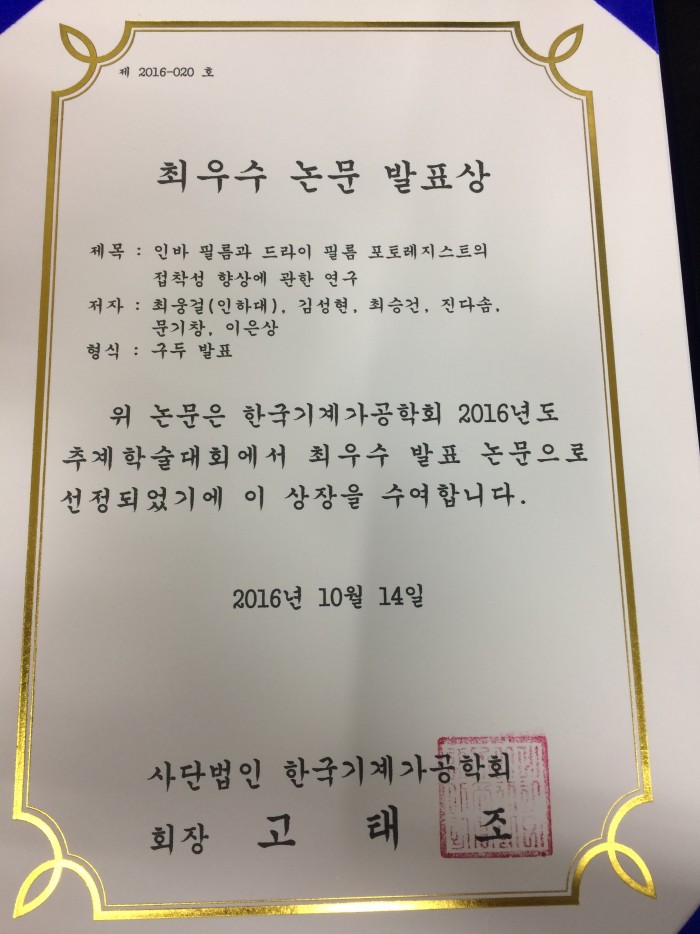 제 2016-020 호
최우수 논문 발표상
제목 : 인바 필름과 드라이 필름 포토레지스트의
접착성 향상에 관한 연구
저자 : 최웅걸(인하대), 김성현, 최승건, 진다솜,
문기창, 이은상
형식 : 구두 발표
위 논문은 한국기계가공학회 2016년도
추계학술대회에서 최우수 발표 논문으로
선정되었기에 이 상장을 수여합니다.
2016년 10월 14일
사단법인 한국기계가공학회
회장 고 태 조